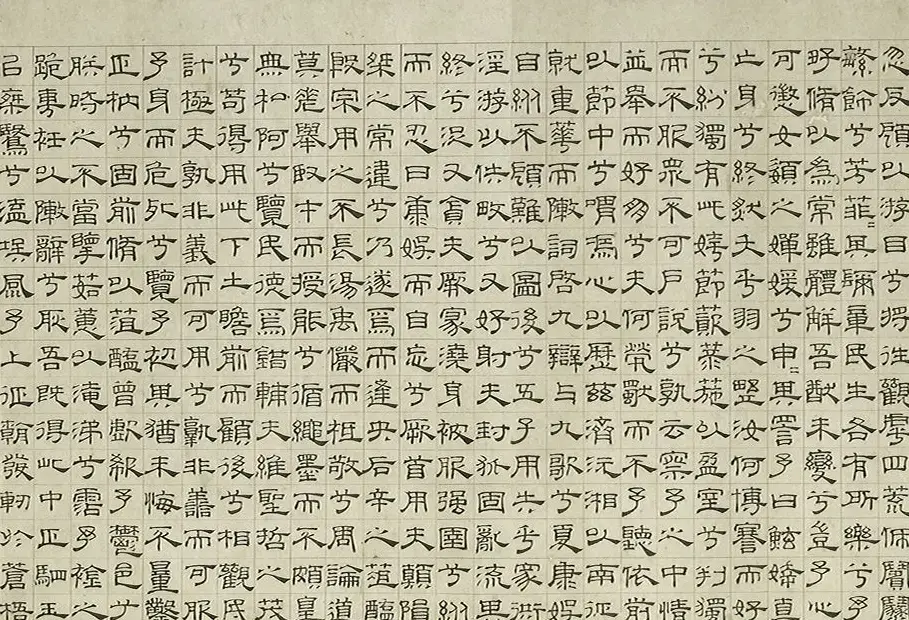 忽反顧以游目兮將往觀乎四荒佩繽
繁飾兮芳菲=其彌章民生各有所樂兮予
好脩以為常雖體解吾猶未變兮豈予心
可懲女嬃之嬋媛兮申=其詈予曰鮌婞直
亡身兮終然夭乎羽之野汝何博謇而好
兮紛獨有此姱節薋菉葹以盈室兮判獨
而不服眾不可戶說兮孰云察予之中情
並舉而好朋兮夫何煢獨而不予聽依前
以節中兮喟憑心以歷茲濟沅湘以南征
就重華而敶詞啓九辯與九歌兮夏康娛
自縱不顧難以圖後兮五子用失乎家衖
淫游以佚畋兮又好射夫封狐固亂流其
終兮浞又貪夫厥家澆身被服强圉兮縱
而不忍日康娛而自忘兮厥首用夫顛隕
桀之常違兮乃遂焉而逢央后辛之菹醢
殷宗用之不長湯禹儼而祗敬兮周論道
莫差舉取才而授能兮循繩墨而不頗皇
無私阿兮覽民德焉錯輔夫維聖哲之茂
兮苟得用此下土瞻前而顧後兮相觀民
計極夫孰非義而可用兮孰非善而可服
予身而危死兮覽予初其猶未悔不量鑿
正枘兮固前脩以菹醢曾歔欷予鬱邑兮
朕時之不當擥茹蕙以淹涕兮霑予襟之
跪尃衽以敶辭兮耿吾既得此中正駟玉
以乘鷖兮溘埃風予上征朝發軔於蒼梧